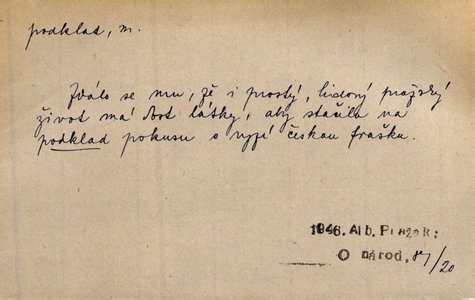 podklad, m.
Zdálo se mu, že i prostý, lidový pražský
život má dost látky, aby stačila na
podklad pokusu o vyšší českou frašku.
1946. Alb. Pražák:
O národ, 87/20